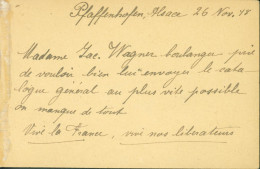 Pfaffenhofen, Alsace 26 Nov. 18
Madame Jac. Wagner boulanger prie
de vouloir bien lui envoyer le cata
logue général au plus vite possible
on manque de tout
Vive la France, vive nos libérateurs